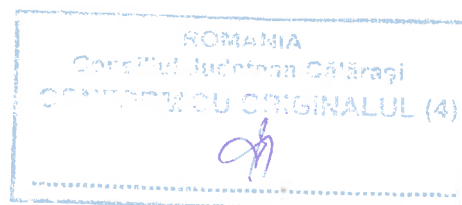 ROMANIA
Consiliul Judetean Călărași
CONFORM CU ORIGINALUL (4)